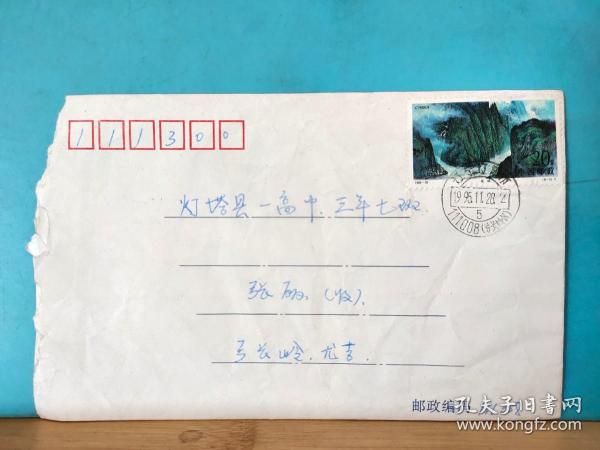 111300
20
1995.11.28.
5
111008
灯塔县一高中.三年七班
张丽(收).
弓长岭.尤吉.
邮政编码
孔夫子旧书网
www.kongfz.com